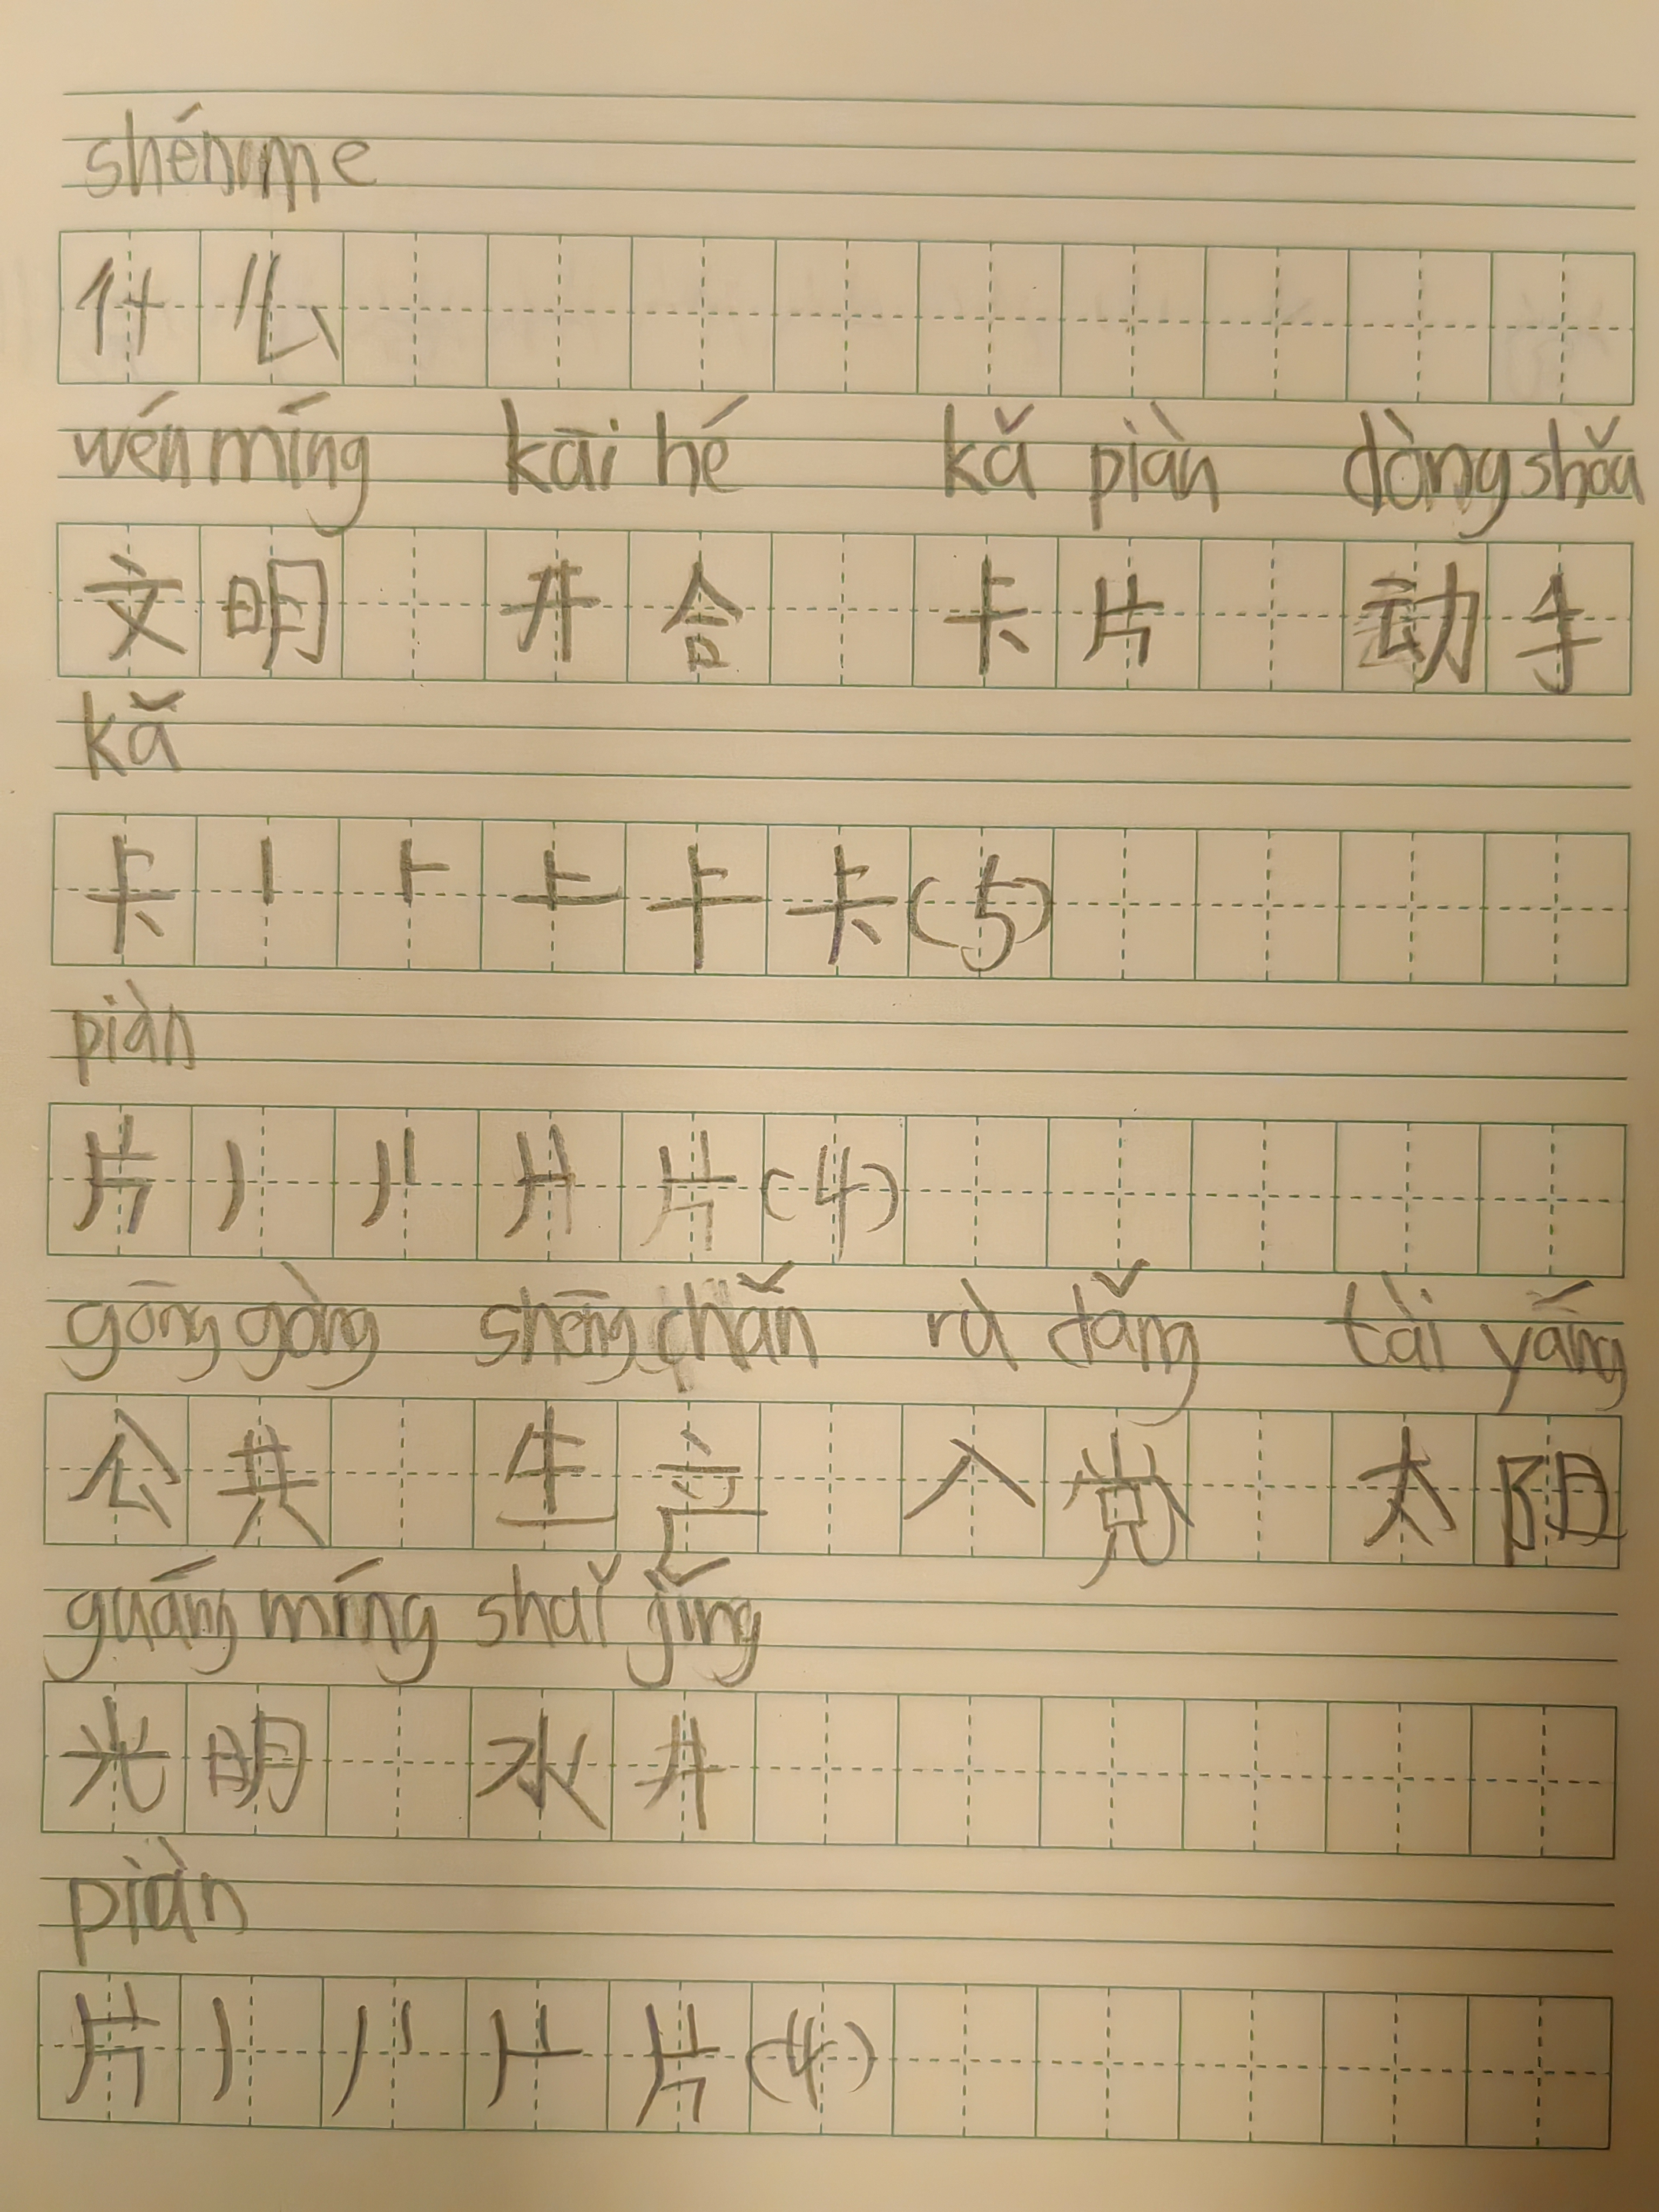 shénme
什么
wénmíng kāi hé kǎ piàn dòngshǒu
文明 开合 卡片 动手
kǎ
卡 丨 ⺊ 上 卡 (5)
piàn
片 丿 片 (4)
gōnggòng shēngchǎn rù dǎng tài yáng
公共 生产 入党 太阳
guáng míng shuǐ jǐng
光明 水井
piàn
片 丿 片 (4)